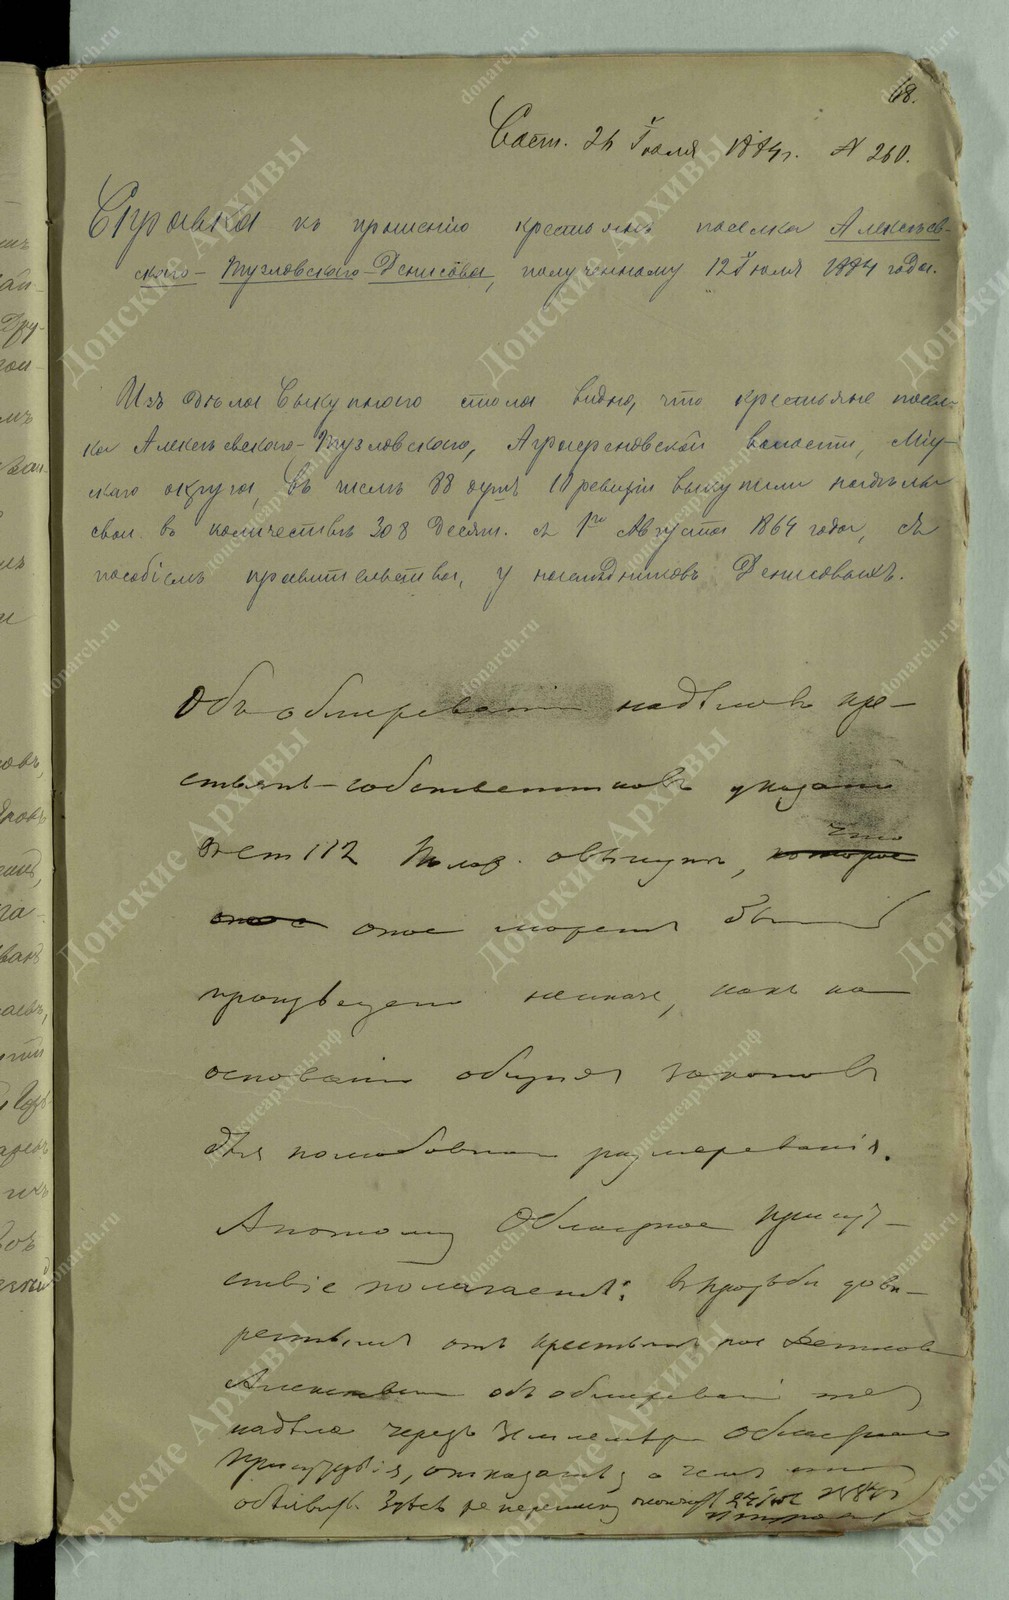 68.
Сост. 26 Іюля 1884 г. № 260.
Справка къ прошенію крестьянъ поселка Алексѣев-
скаго-Тузловскаго-Денисова, полученному 12 Іюля 1884 года.
Изъ дѣла Выкупного стола видно, что крестьяне посел-
ка Алексѣевскаго-Тузловскаго, Аграфеновской волости, Міус-
скаго округа, въ числѣ 88 душъ 10 ревизіи выкупили надѣлы
свои въ количествѣ 308 Десят. съ 1го Августа 1864 года, съ
пособіемъ правительства, у наслѣдниковъ Денисовыхъ.
Объ обмежеваніи надѣловъ кре-
стьянъ-собственниковъ указано
въ ст 112 Полож. о выкупѣ, которое что
оное оное можетъ быть
произведено неиначе, какъ на
основаніи общихъ законовъ
для полюбовнаго размежеванія.
А потому Областное Присут-
ствіе полагаетъ: въ просьбѣ довѣ-
реннымъ отъ крестьянъ пос Денисова
Алексѣевскаго объ обмежеваніи
надѣла чрезъ Землемѣра Областнаго
Присутствія, отказать, о чемъ
объявить